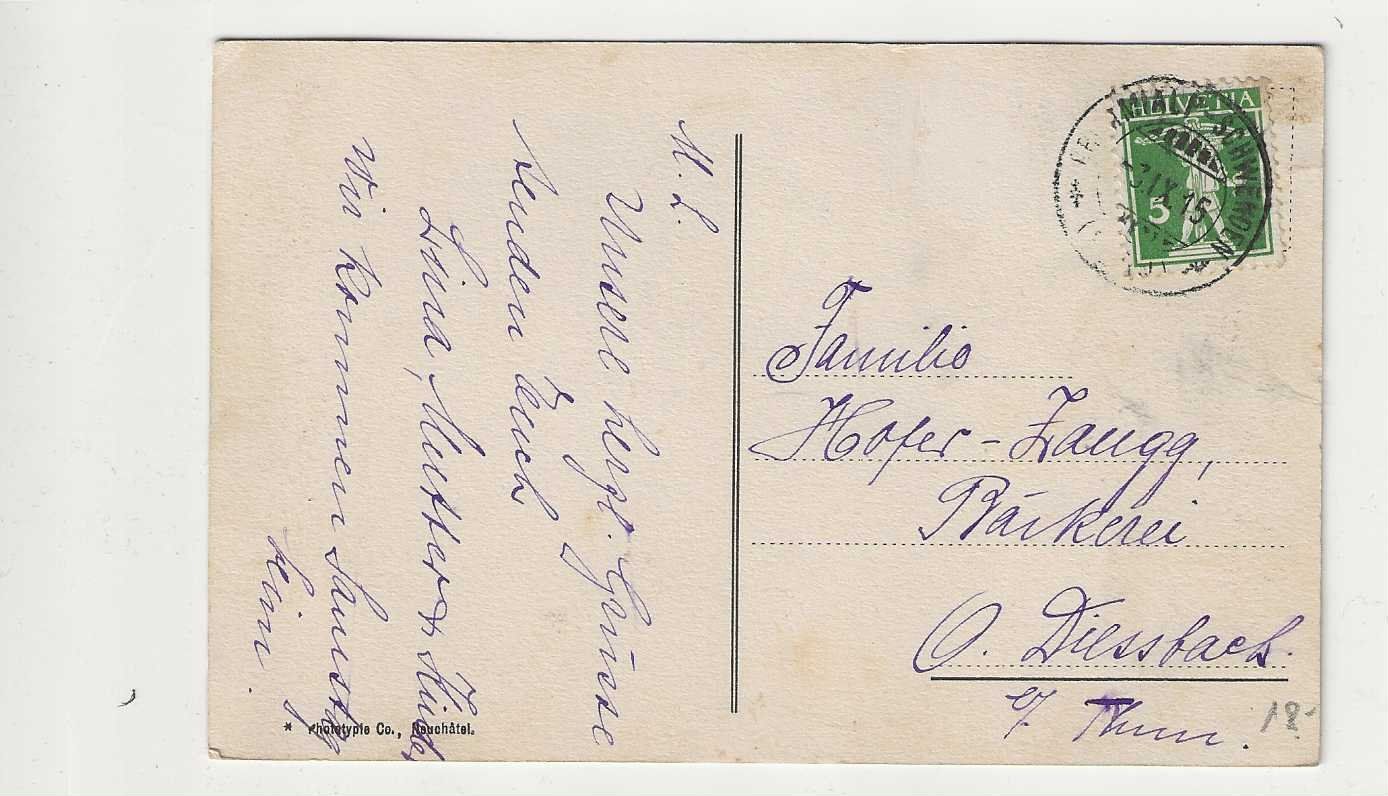 M. L.
Unsere herzl. Grüsse
senden Euch
Lina, Mutter & Kinder
Wir kommen Samstag
heim.
* Phototypie Co., Neuchâtel.
HELVETIA
5
IX 15
Familie
Hofer-Zaugg,
Bäckerei
O. Diessbach.
b/ Thun.
18.-